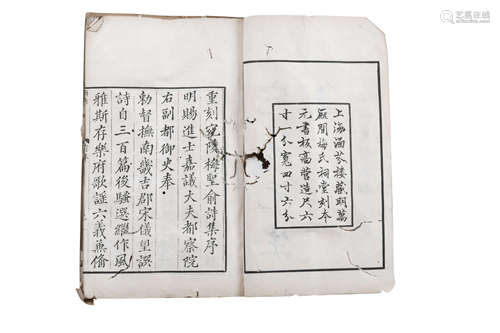 上海涵芬樓藏明萬
厯閒梅氏祠堂刻本
元書板高營造尺六
寸一分寬四寸六分
重刻宛陵梅聖俞詩集序
明賜進士嘉議大夫都察院
右副都御史奉
勅督撫南畿吉郡宋儀望譔
詩自三百篇後騷選繼作風
雅斯存樂府歌謡六義無偹
艺狐在线